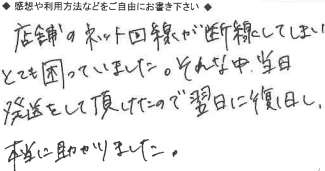 ◆ 感想や利用方法などをご自由にお書き下さい ◆
店舗のネット回線が断線してしまい
とても困っていました。そんな中、当日
発送をして頂けたので翌日に復旧し、
本当に助かりました。